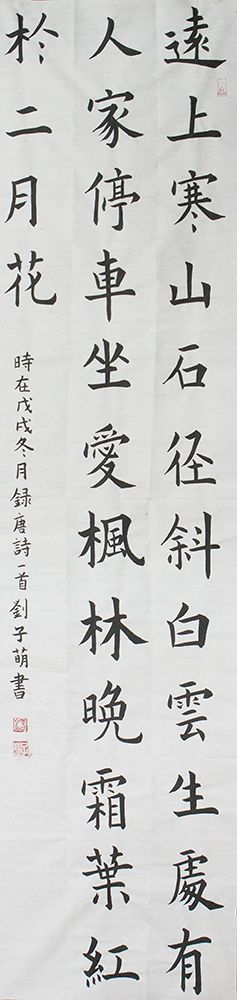 遠上寒山石径斜白雲生處有
人家停車坐愛楓林晚霜葉紅
於二月花
時在戊戌冬月録唐詩一首劉子萌書